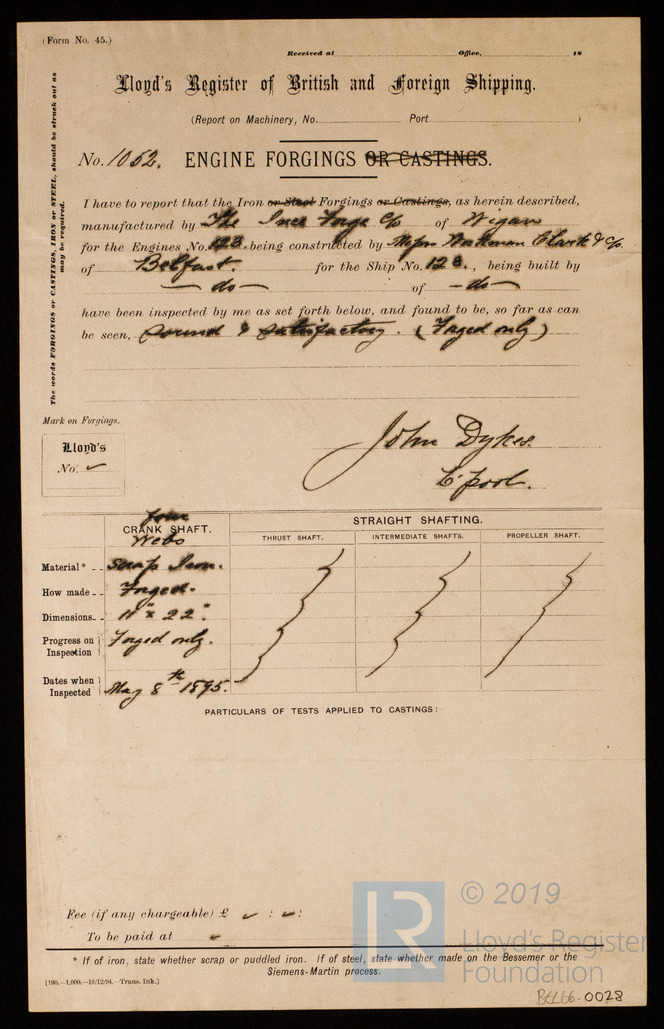 (Form No. 45.)
Received at Office, 18
Lloyd's Register of British and Foreign Shipping.
(Report on Machinery, No. Port )
The words FORGINGS or CASTINGS, IRON or STEEL, should be struck out as may be required.
No. 1052. ENGINE FORGINGS OR CASTINGS.
I have to report that the Iron or Steel Forgings or Castings, as herein described,
manufactured by The Ince Forge Co of Wigan
for the Engines No. 123. being constructed by Messrs Workman Clark & Co.
of Belfast. for the Ship No. 123., being built by
— do — of — do —
have been inspected by me as set forth below, and found to be, so far as can
be seen, sound & satisfactory. (Forged only)
Mark on Forgings.
Lloyd's
No. ✓
John Dykes.
L'pool.
four
CRANK SHAFT. STRAIGHT SHAFTING.
Webs THRUST SHAFT. INTERMEDIATE SHAFTS. PROPELLER SHAFT.
Material* Scrap Iron.
How made Forged.
Dimensions 11" x 22".
Progress on Inspection Forged only.
Dates when Inspected May 8th 1895.
PARTICULARS OF TESTS APPLIED TO CASTINGS:-
Fee (if any chargeable) £ ✓ : ✓ :
To be paid at ✓
* If of iron, state whether scrap or puddled iron. If of steel, state whether made on the Bessemer or the
Siemens-Martin process.
[190.—1,000.—19/12/94.—Trans. Ink.]
LR
© 2019
Lloyd's Register
Foundation
0028